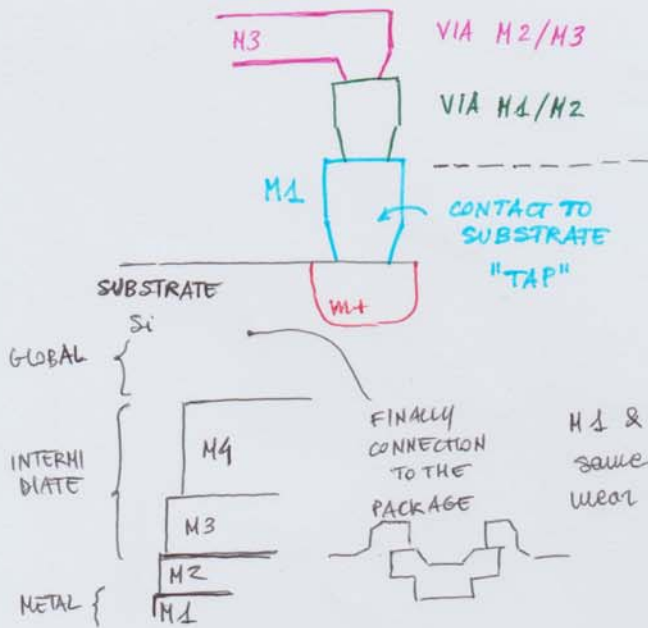 M3
VIA M2/M3
VIA M1/M2
M1
CONTACT TO
SUBSTRATE
"TAP"
SUBSTRATE
Si
n+
GLOBAL
INTERMI
DIATE
METAL
M4
M3
M2
M1
FINALLY
CONNECTION
TO THE
PACKAGE
M1 &
same